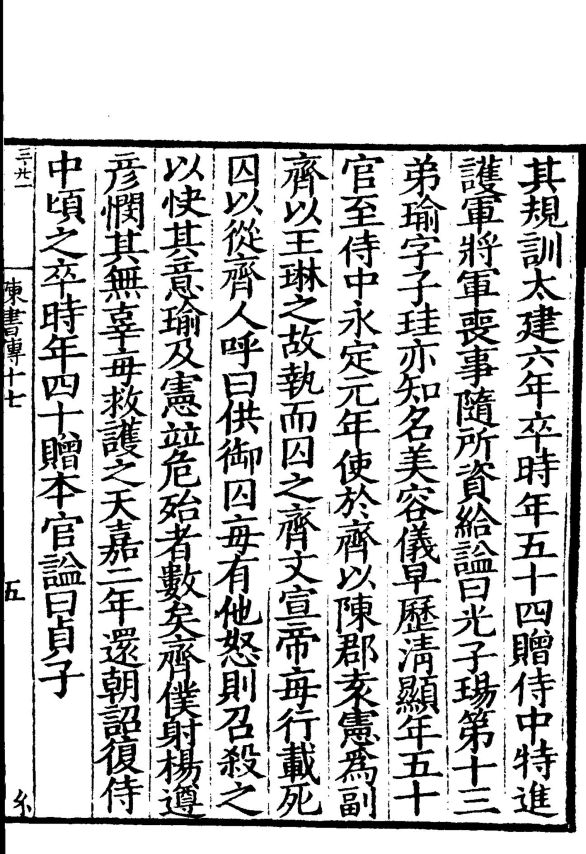 其規訓太建六年卒時年五十四贈侍中特進
護軍將軍喪事隨所資給謚曰光子瑒第十三
弟瑜字子珪亦知名美容儀早歷清顯年五十
官至侍中永定元年使於齊以陳郡袁憲爲副
齊以王琳之故執而囚之齊文宣帝每行載死
囚以從齊人呼曰供御囚每有他怒則召殺之
以快其意瑜及憲並危殆者數矣齊僕射楊遵
彥憫其無辜每救護之天嘉二年還朝詔復侍
中頃之卒時年四十贈本官謚曰貞子
三廿一
陳書傳十七
五